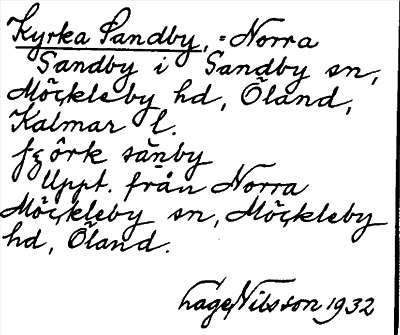 Kyrka Sandby, = Norra
Sandby i Sandby sn,
Möckleby hd, Öland,
Kalmar l.
örk sanby
Uppt. från Norra
Möckleby sn, Möckleby
hd, Öland.
Hage Nilsson 1932